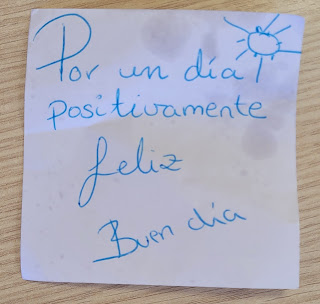 Por un día
positivamente
feliz
Buen día